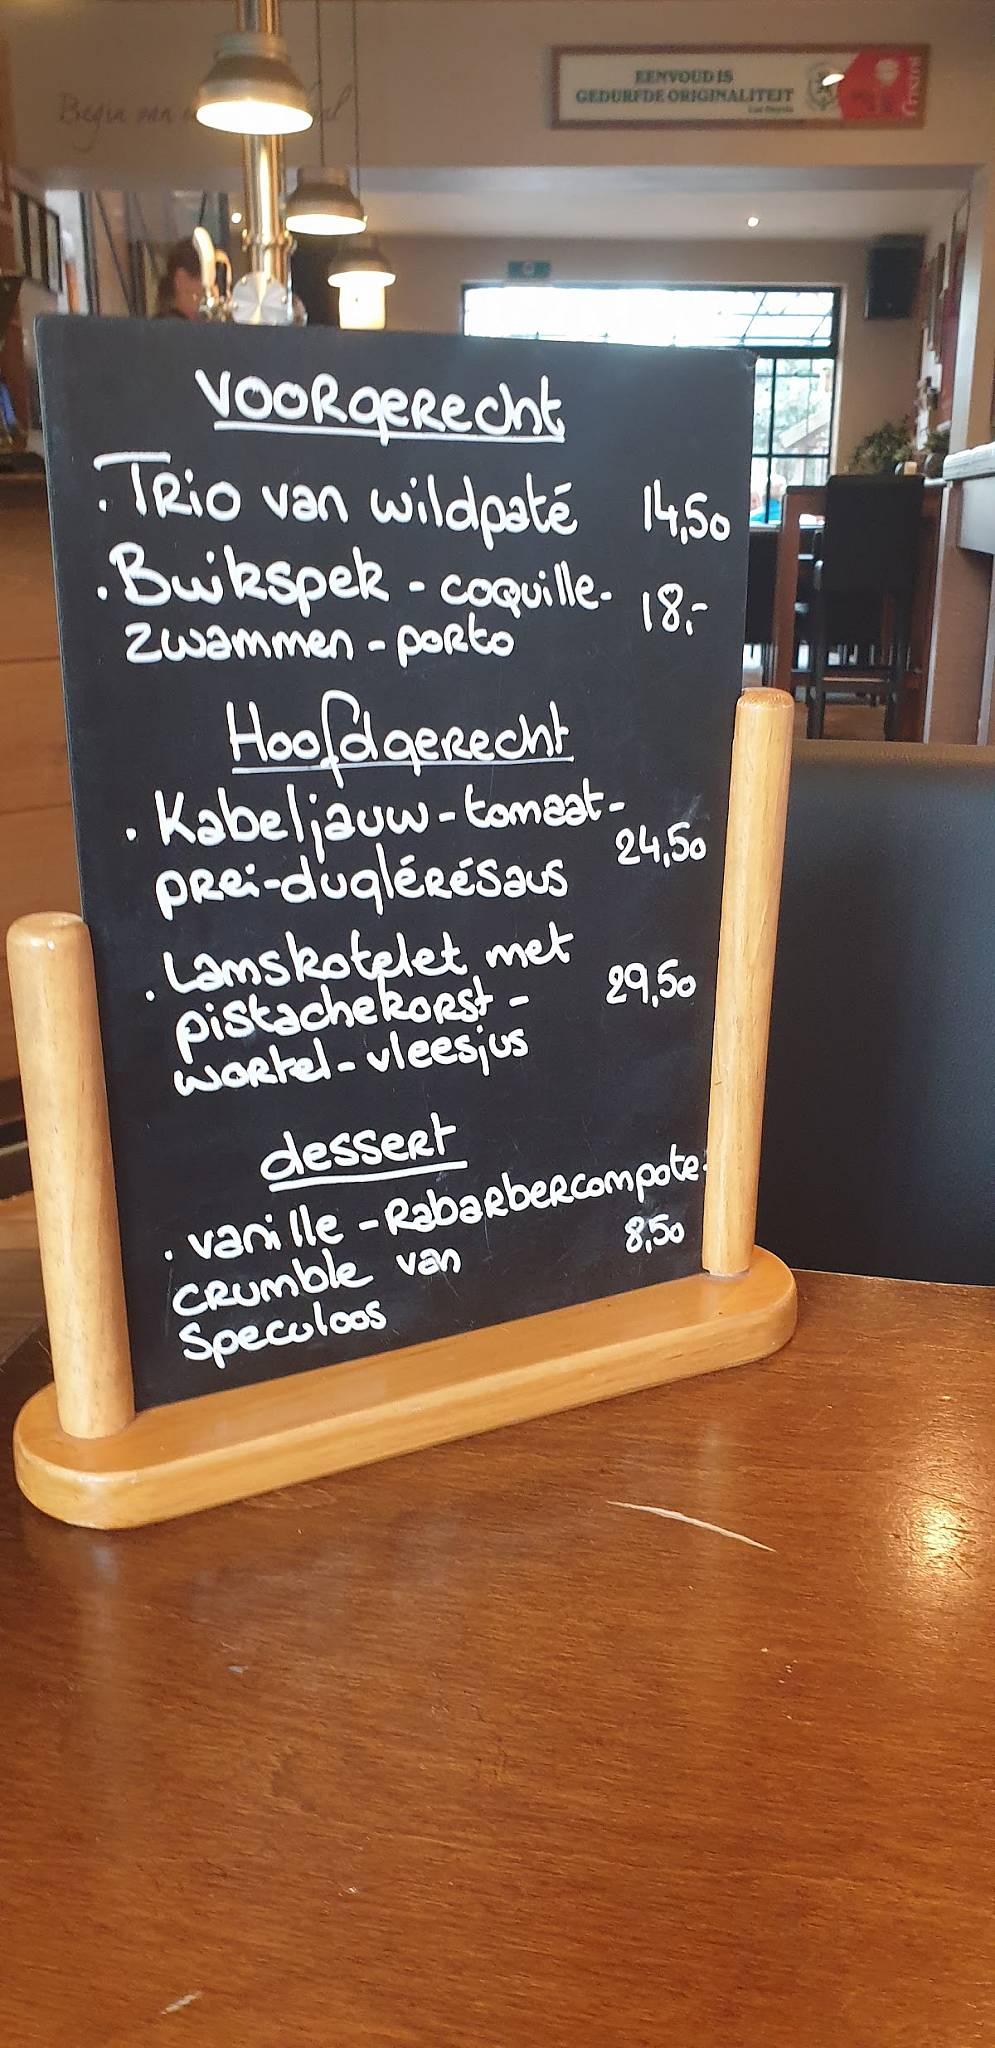 Begin van
EENVOUD IS
GEDURFDE ORIGINALITEIT
VOORgerecht
. Trio van wildpaté 14,50
. Buikspek - coquille- 18,-
zwammen - porto
Hoofdgerecht
. Kabeljauw - tomaat- 24,50
prei-dugléresaus
. Lamskotelet met 29,50
pistachekorst -
wortel - vleesjus
dessert
. vanille - Rabarbercompote.
crumble van 8,50
Speculoos